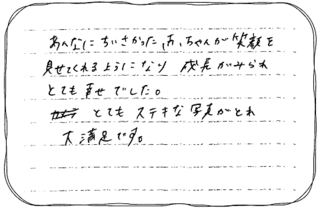 あんなにちいさかった赤ちゃんが笑顔を
見せてくれるようになり 成長がみられ
とても幸せでした。
とても ステキな写真がとれ
大満足です。